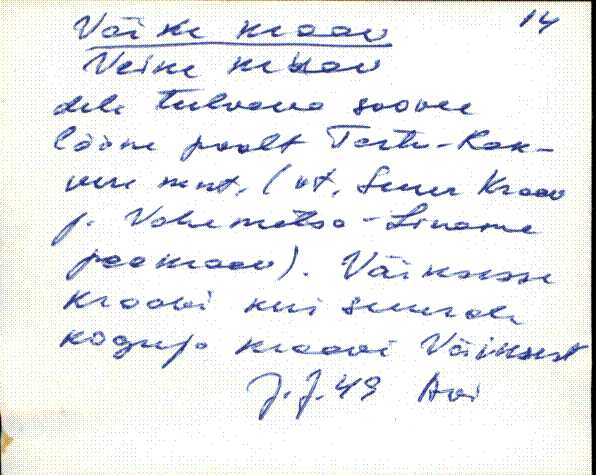 14
Väike kraav
Veike kraav
dele tulvava soovee
lääne poolt Tartu-Rak-
vere mnt. (vt. Suur Kraav
j. Vahemetsa-Liname
peakraav). Väiksesse
kraavi kui suurde
koguja kraavi Väiksest
J.J. 49 Avi